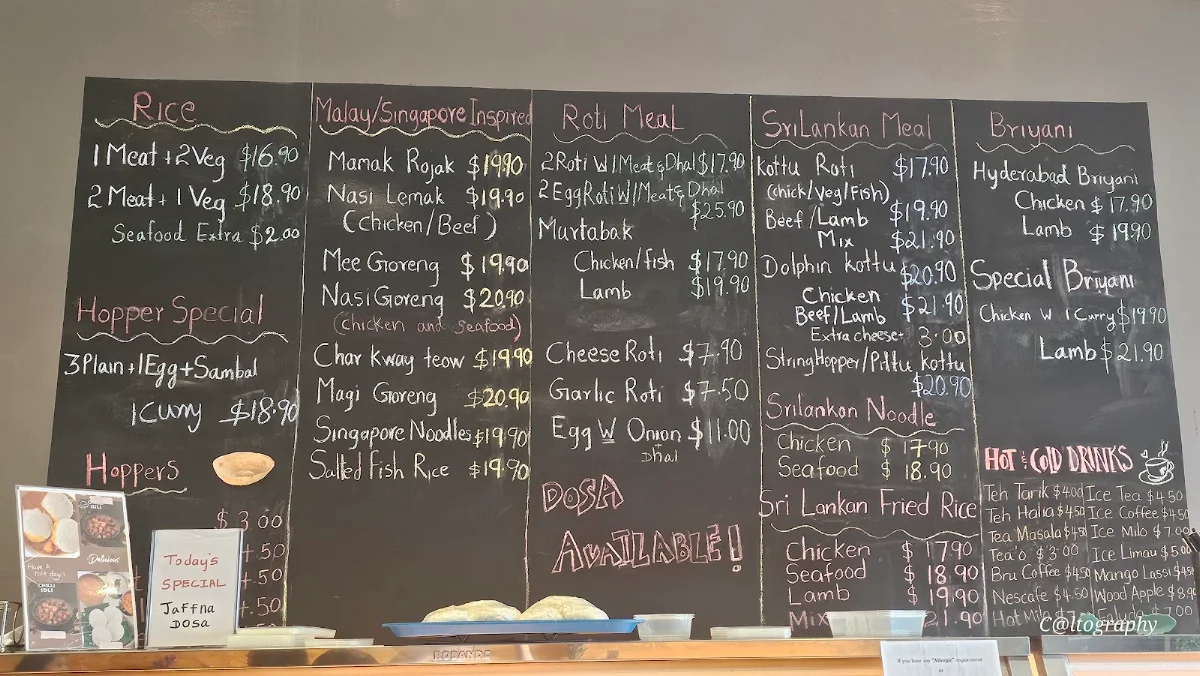 Rice
1 Meat + 2 Veg $16.90
2 Meat + 1 Veg $18.90
Seafood Extra $2.00
Hopper Special
3 Plain + 1 Egg + Sambal
1 Curry $18.90
Hoppers
$3.00
4.50
4.50
4.50
Today's
SPECIAL
Jaffna
DOSA
IDLI
Delicious
Have a
nice day!
CHILLI
IDLI
Malay/Singapore Inspired
Mamak Rojak $19.90
Nasi Lemak $19.90
(Chicken/Beef)
Mee Goreng $19.90
Nasi Goreng $20.90
(chicken and seafood)
Char kway teow $19.90
Magi Goreng $20.90
Singapore Noodles $19.90
Salted Fish Rice $19.90
Roti Meal
2 Roti W 1 Meat & Dhal $17.90
2 Egg Roti W 1 Meat & Dhal
$25.90
Murtabak
Chicken/fish $17.90
Lamb $19.90
Cheese Roti $7.90
Garlic Roti $7.50
Egg W Onion $11.00
Dhal
DOSA
AVAILABLE!
SriLankan Meal
Kottu Roti $17.90
(chick/Veg/Fish)
Beef/Lamb $19.90
Mix $21.90
Dolphin kottu $20.90
Chicken
Beef/Lamb $21.90
Extra cheese+ 3.00
StringHopper/Pittu kottu
$20.90
Srilankan Noodle
Chicken $17.90
Seafood $18.90
Sri Lankan Fried Rice
Chicken $17.90
Seafood $18.90
Lamb $19.90
Mix 21.90
Briyani
Hyderabad Briyani
Chicken $17.90
Lamb $19.90
Special Briyani
Chicken W 1 Curry $19.90
Lamb $21.90
HOT & COLD DRINKS
Teh Tarik $4.00 Ice Tea $4.50
Teh Halia $4.50 Ice Coffee $4.50
Tea Masala $4.50 Ice Milo $7.00
Tea'o $3.00 Ice Limau $5.00
Bru Coffee $4.50 Mango Lassi $4.50
Nescafe $4.50 Wood Apple $8.90
Hot Milo $7.00 Faluda $7.00
C@ltography
ROBAND
If you have any "Allergic" requirement